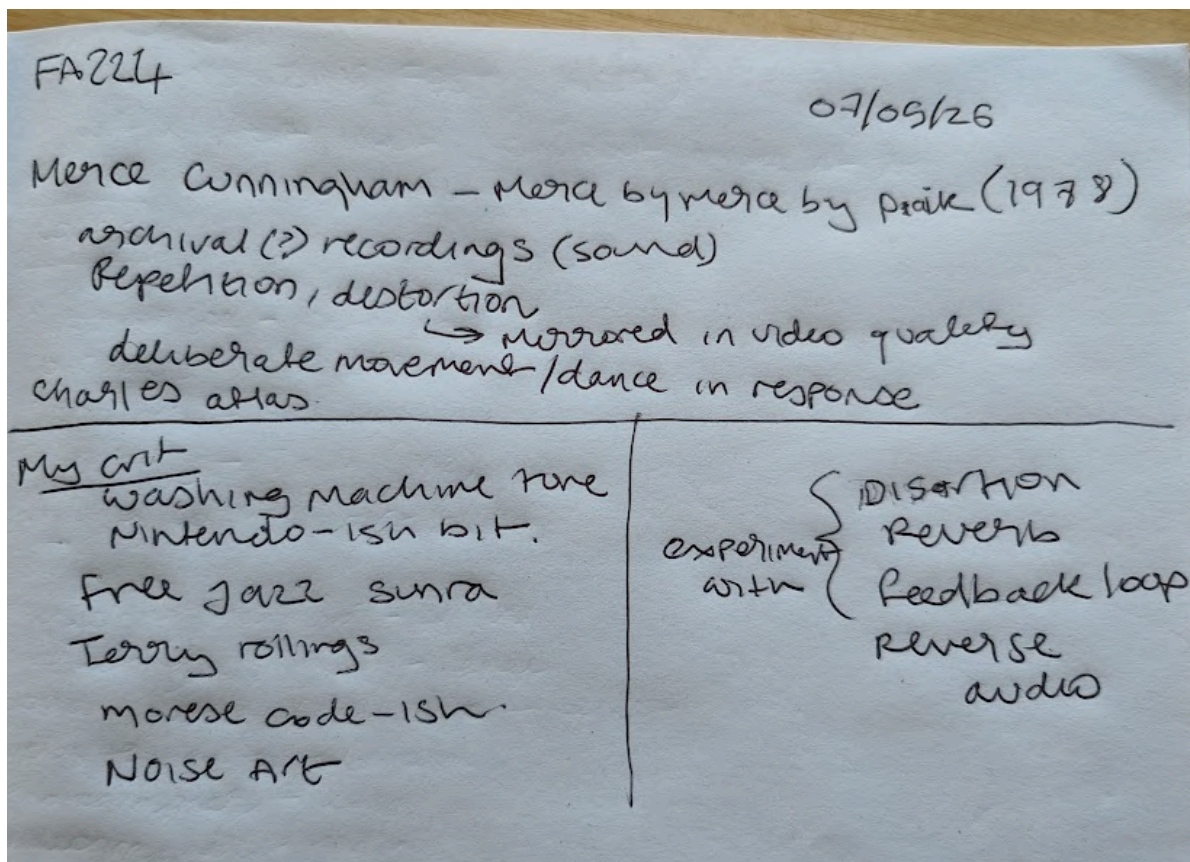 FA224
07/05/26
Merce Cunningham – Merce by Merce by Paik (1978)
archival (?) recordings (sound)
Repetition, distortion
↳ mirrored in video quality
deliberate movement/dance in response
Charles Atlas
My crit
Washing Machine tone
Nintendo-ish bit.
Free Jazz sunra
Terry rollings
morese code-ish.
Noise Art
experiment
with
Disortion
Reverb
feedback loop
Reverse
audio